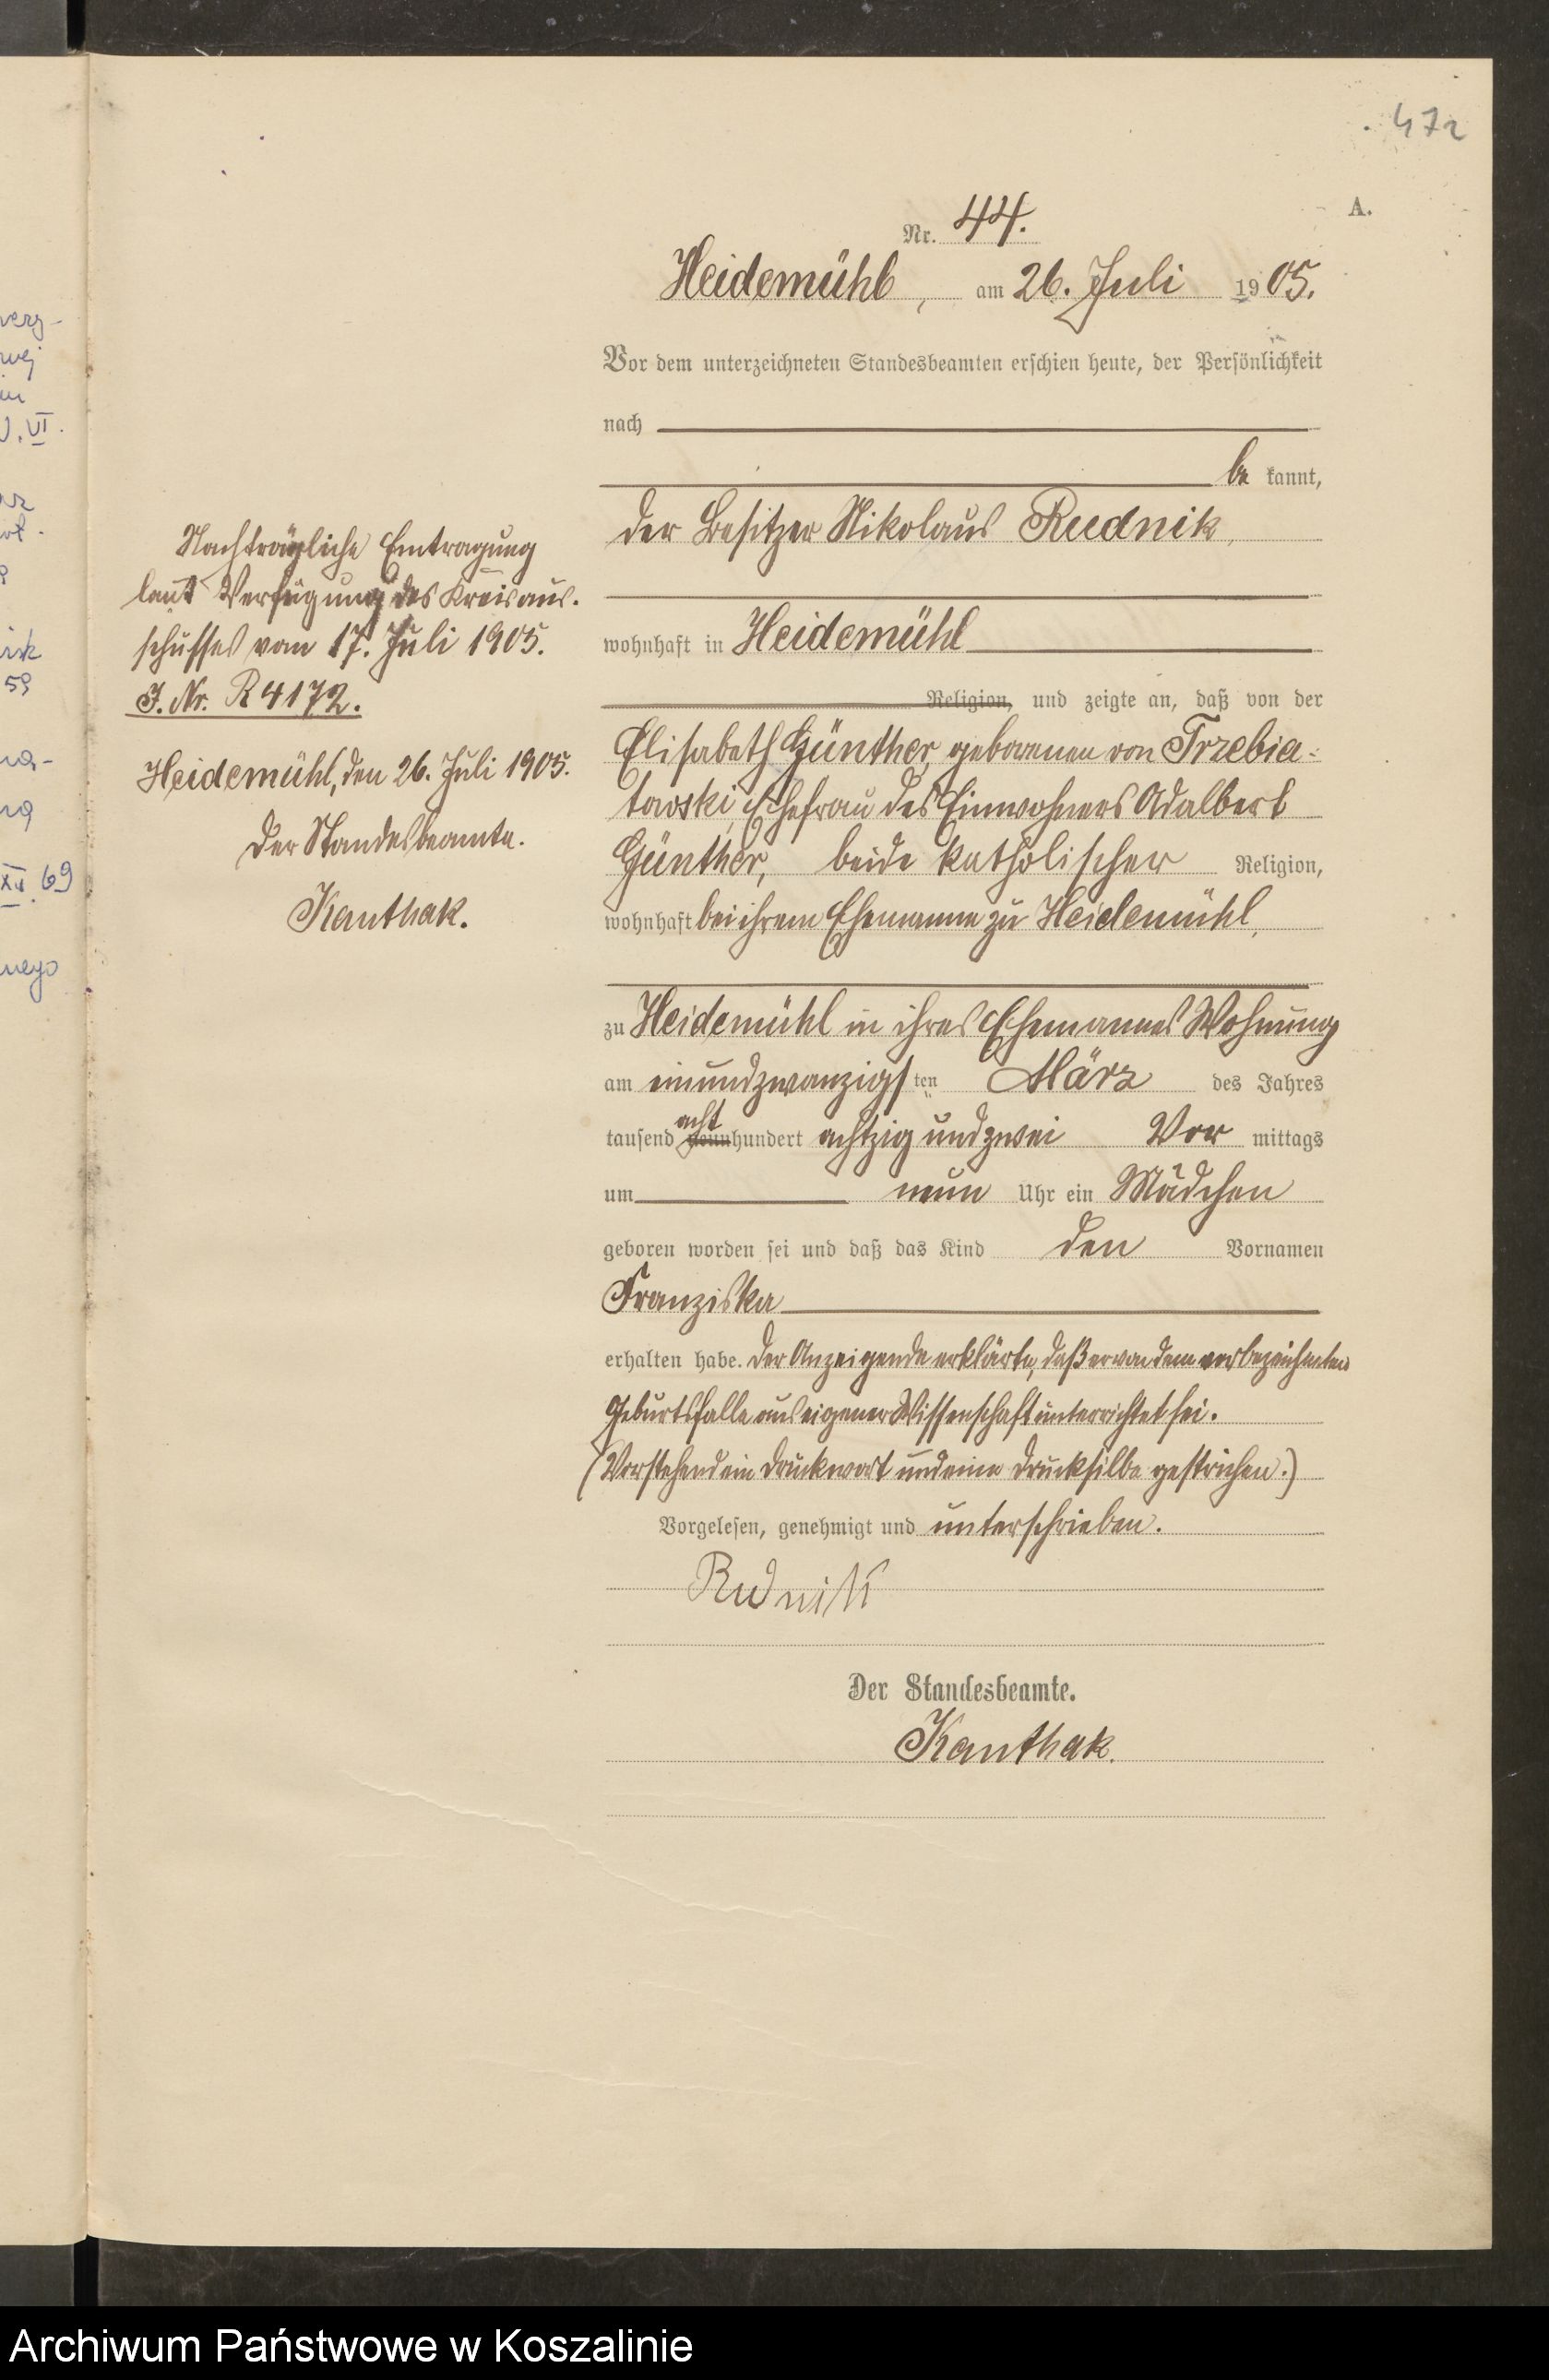 47r
A.
Nr. 44.
Heidemühl, am 26. Juli 1905.
Vor dem unterzeichneten Standesbeamten erschien heute, der Persönlichkeit
nach
be kannt,
der Besitzer Nikolaus Rudnik,
wohnhaft in Heidemühl
Religion, und zeigte an, daß von der
Elisabeth Günther, geborenen von Trzebia-
towski, Ehefrau des Einwohners Adalbert
Günther, beide katholischer Religion,
wohnhaft bei ihrem Ehemanne zu Heidemühl,
zu Heidemühl in ihres Ehemannes Wohnung
am einundzwanzigsten März des Jahres
tausend neun acht hundert achtzig und zwei Vor mittags
um neun Uhr ein Mädchen
geboren worden sei und daß das Kind den Vornamen
Franziska
erhalten habe. Der Anzeigende erklärte, daß er von dem vorbezeichneten
Geburtsfalle aus eigener Wissenschaft unterrichtet sei.
(Vorstehend ein Druckwort und eine Drucksilbe gestrichen.)
Vorgelesen, genehmigt und unterschrieben.
Rudnik
Der Standesbeamte.
Kanthak.
Nachträgliche Eintragung
laut Verfügung des Kreisaus-
schusses vom 17. Juli 1905.
J. Nr. R 4172.
Heidemühl, den 26. Juli 1905.
Der Standesbeamte.
Kanthak.
Archiwum Państwowe w Koszalinie